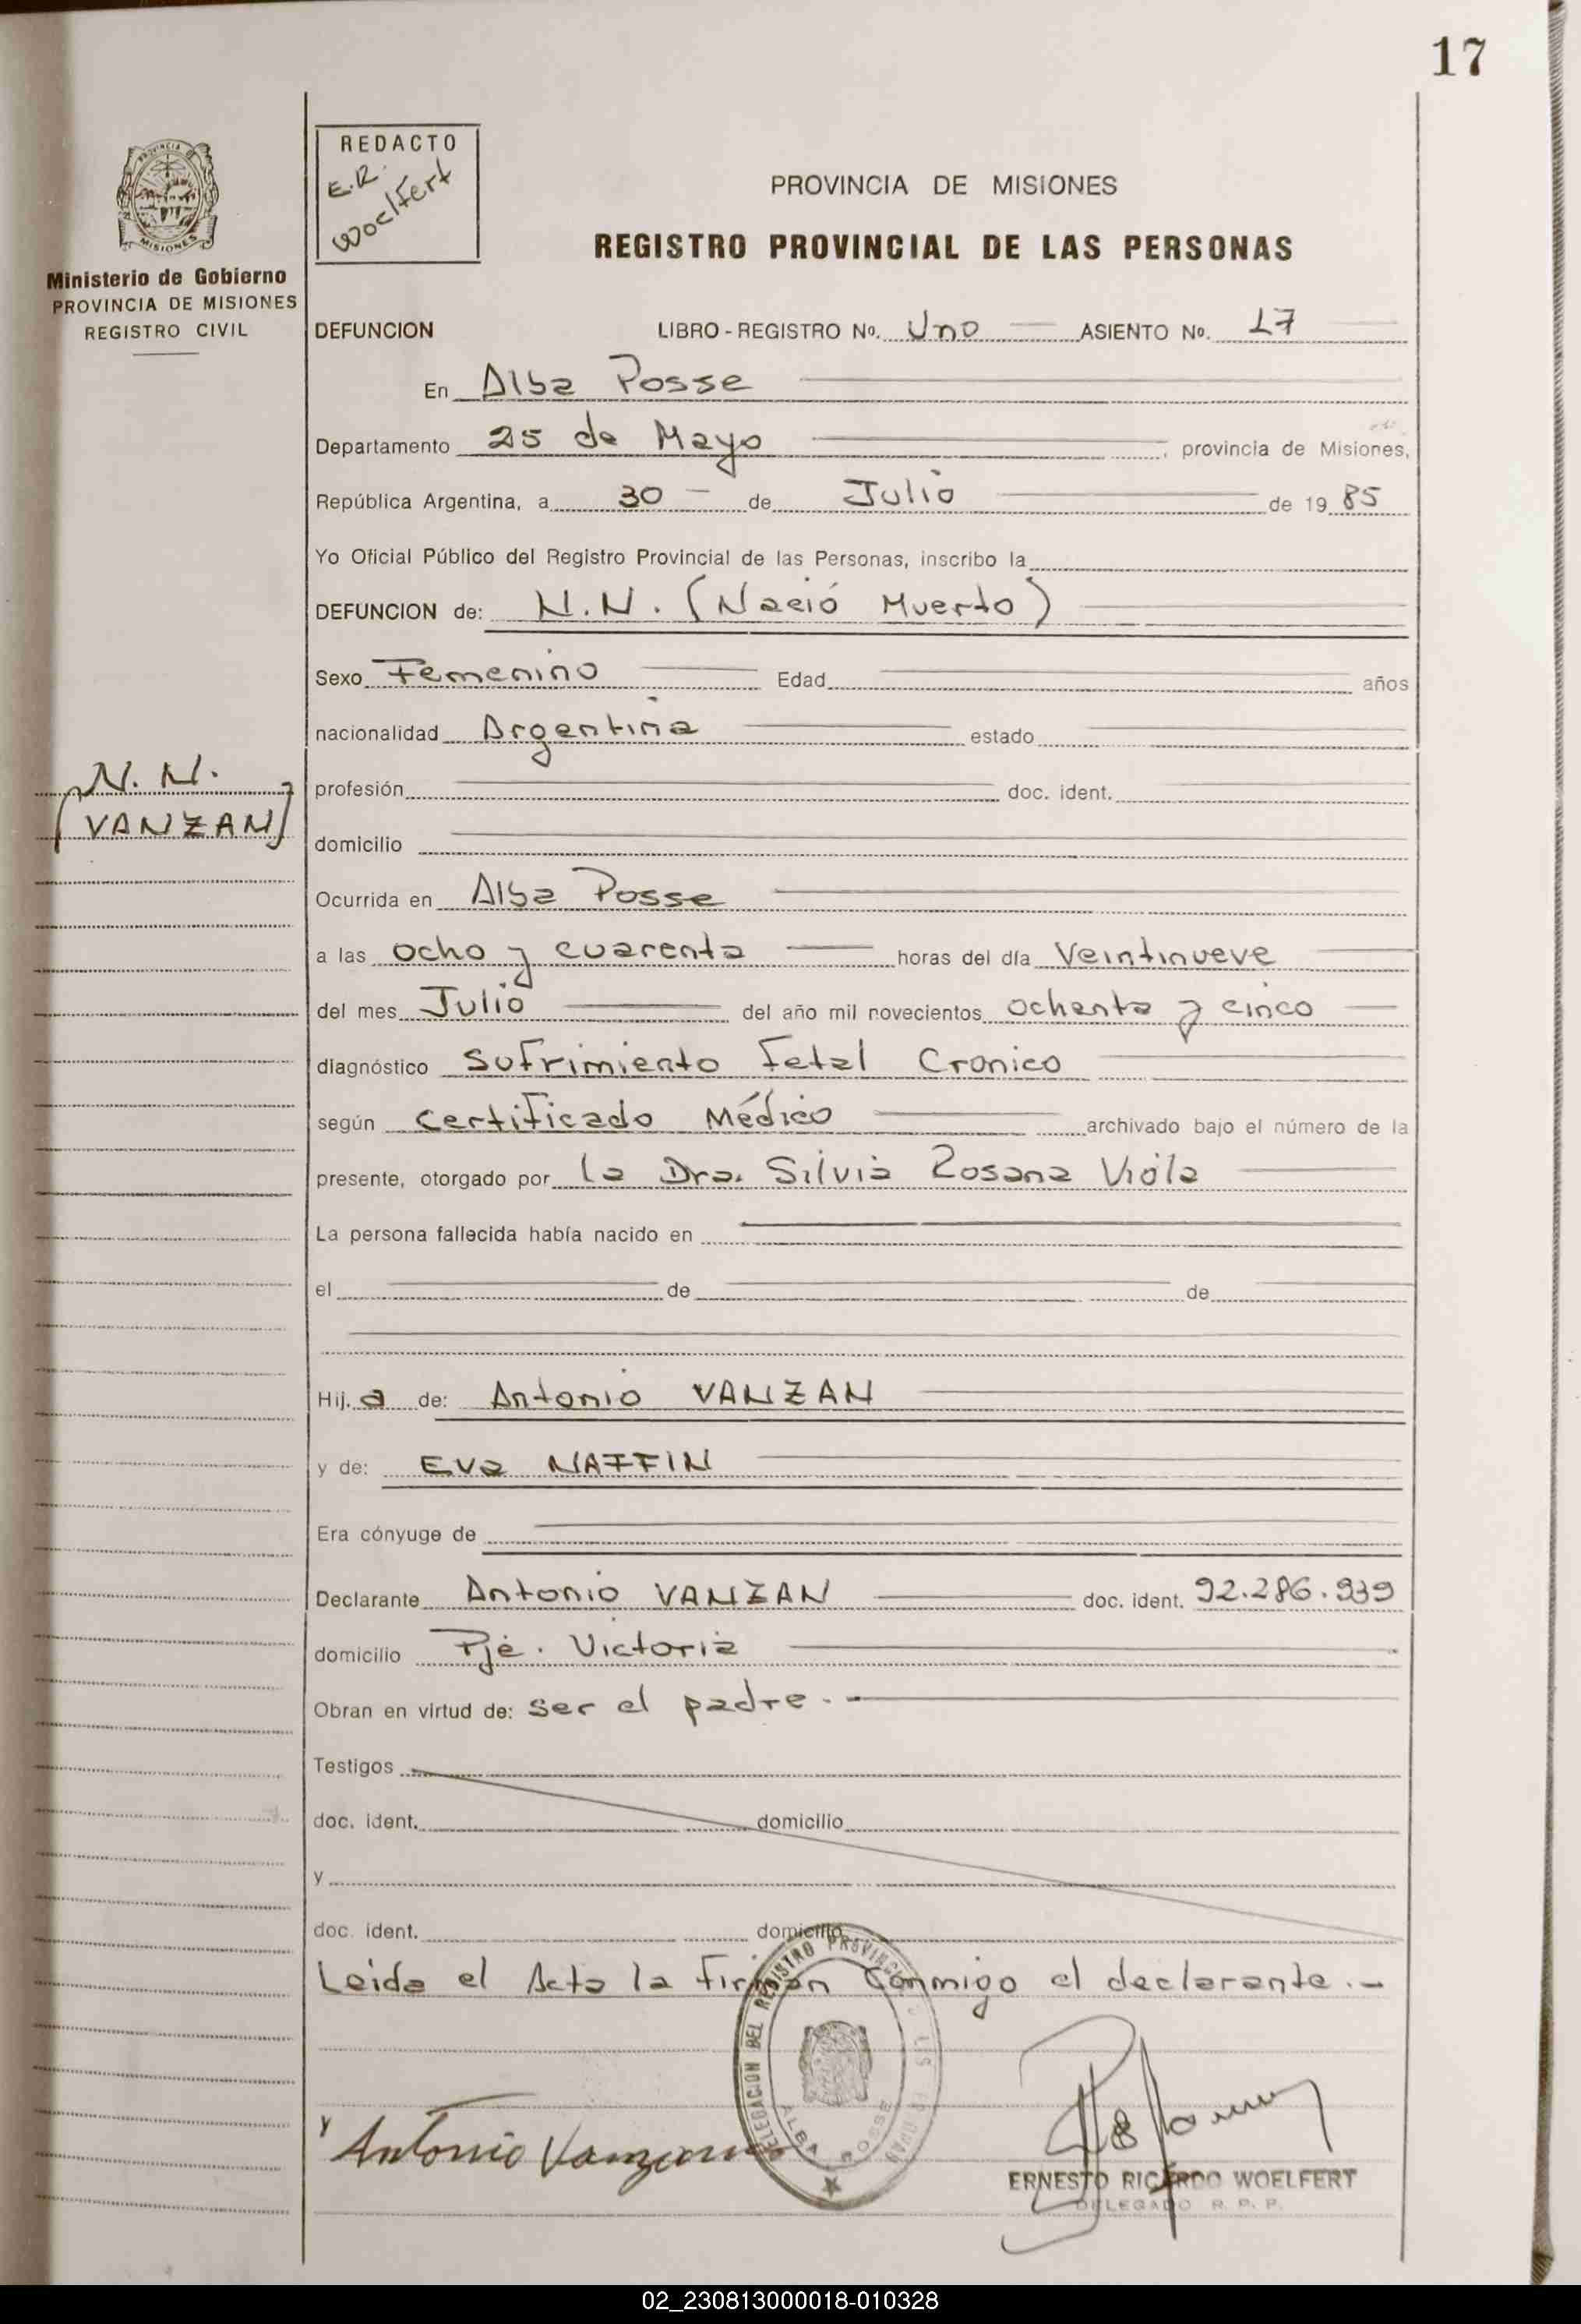 17
REDACTO
E.R.
Woelfert
PROVINCIA DE MISIONES
REGISTRO PROVINCIAL DE LAS PERSONAS
PROVINCIA
MISIONES
Ministerio de Gobierno
PROVINCIA DE MISIONES
REGISTRO CIVIL
DEFUNCION LIBRO - REGISTRO No. Uno ASIENTO No. 17
En Alba Posse
Departamento 25 de Mayo, provincia de Misiones,
República Argentina, a 30 de Julio de 1985
Yo Oficial Público del Registro Provincial de las Personas, inscribo la
DEFUNCION de: N.N. (Nació Muerto)
Sexo Femenino Edad años
nacionalidad Argentina estado
N. N.
(VANZAN)
profesión doc. ident.
domicilio
Ocurrida en Alba Posse
a las ocho y cuarenta horas del día Veintinueve
del mes Julio del año mil novecientos ochenta y cinco
diagnóstico Sufrimiento Fetal Cronico
según Certificado Médico archivado bajo el número de la
presente, otorgado por la Dra. Silvia Rosana Viola
La persona fallecida había nacido en
el de de
Hij.a de: Antonio VANZAN
y de: Eva NAFFIN
Era cónyuge de
Declarante Antonio VANZAN doc. ident. 92.286.939
domicilio Pje. Victoria
Obran en virtud de: ser el padre.-
Testigos
doc. ident. domicilio
y
doc. ident. domicilio
Leida el Acta la Firman conmigo el declarante.-
DELEGACION DEL REGISTRO PROVINCIAL DE LAS PERSONAS
ALBA POSSE
Antonio Vanzan
ERNESTO RICARDO WOELFERT
DELEGADO R. P. P.
02_230813000018-010328